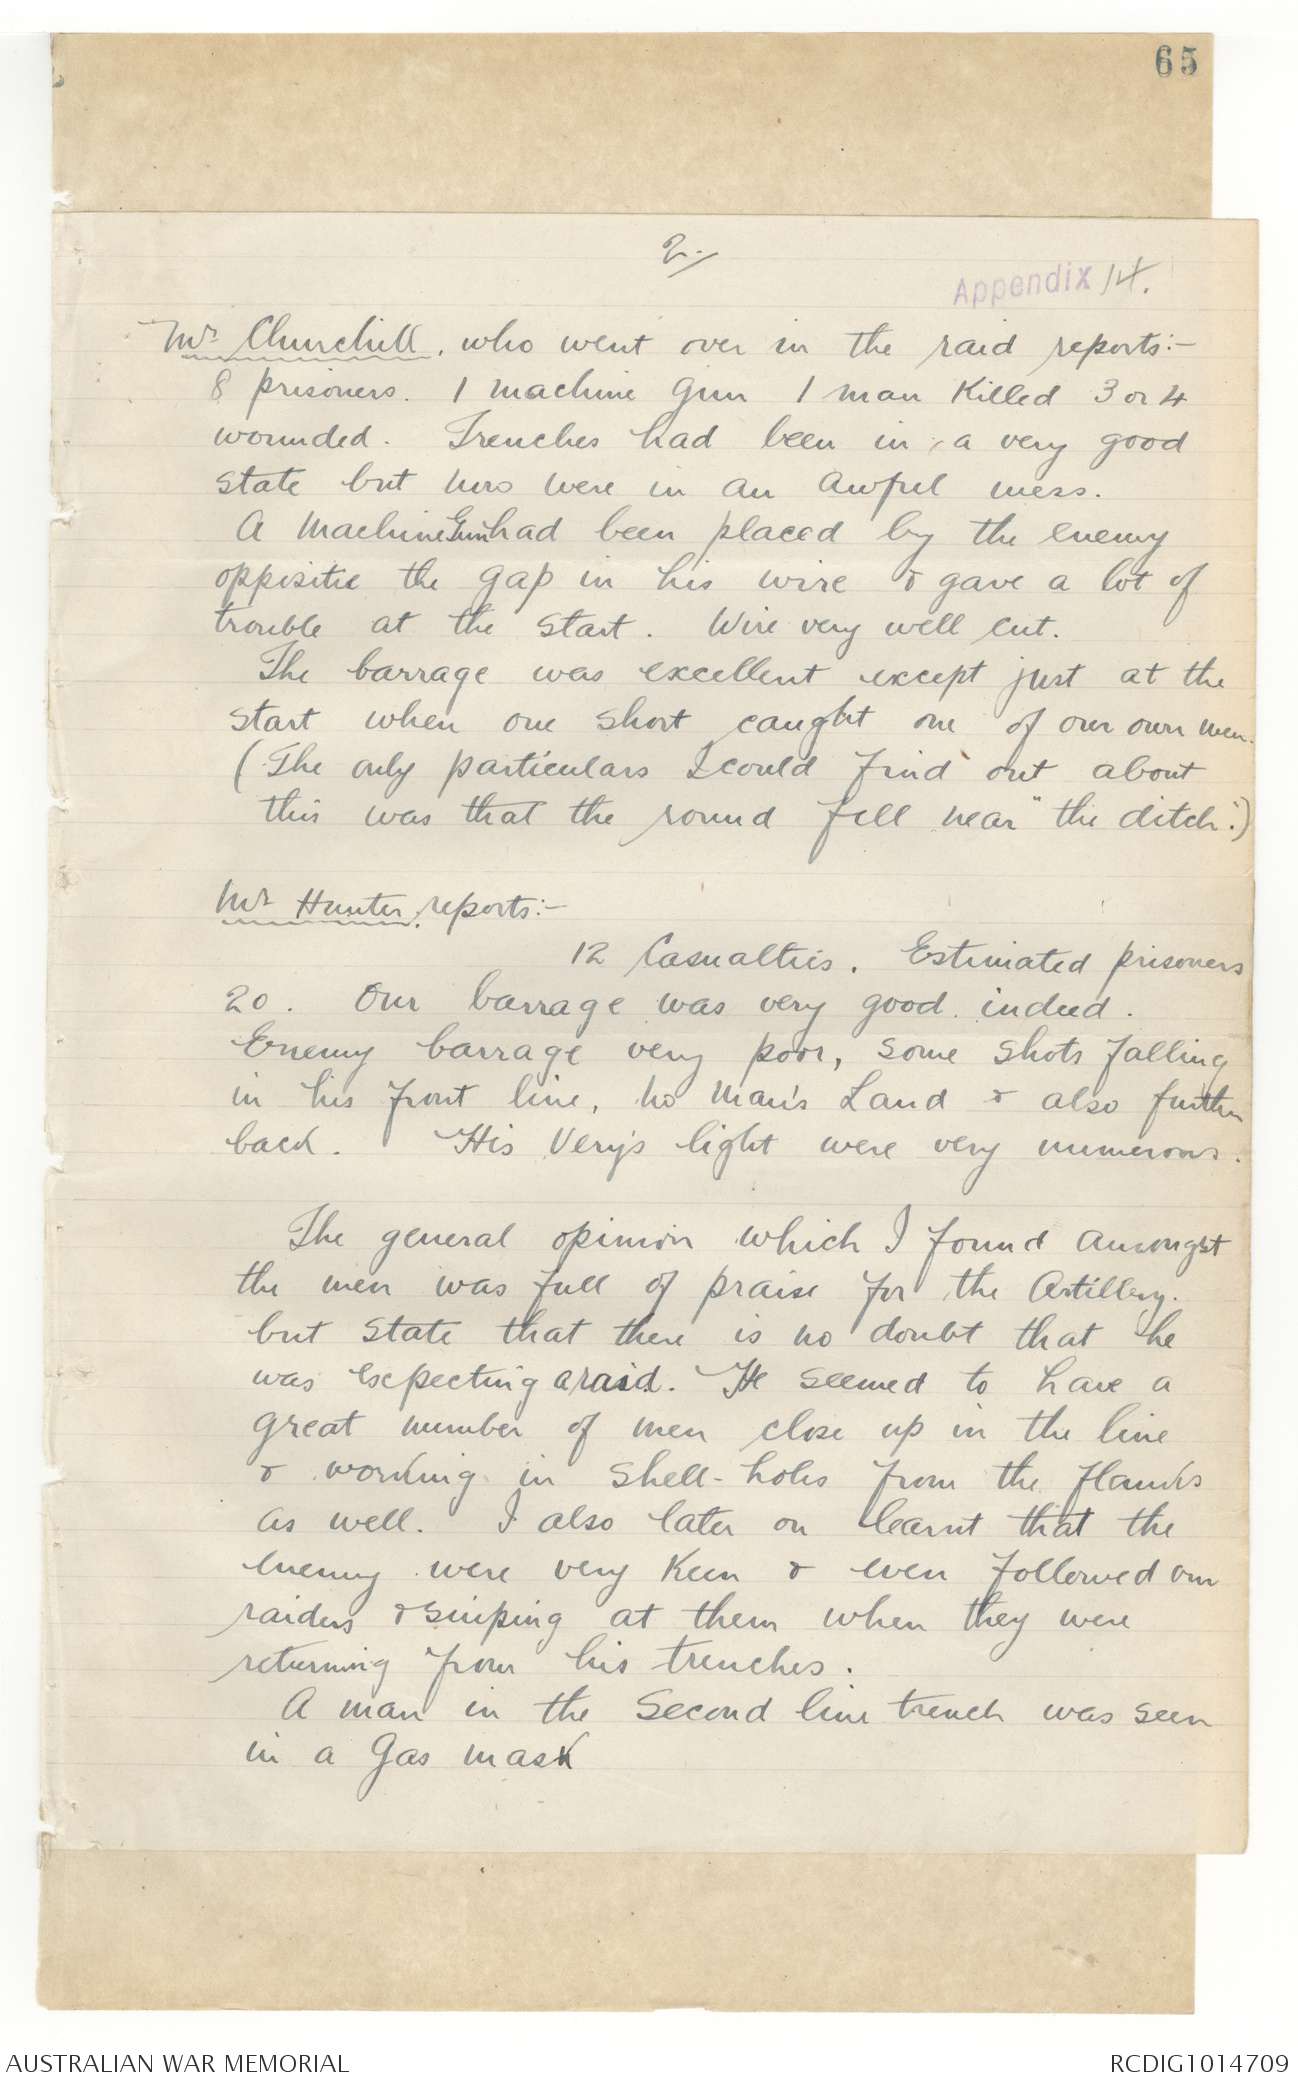 65
2.
Appendix 14.
Mr Churchill, who went over in the raid reports:-
8 prisoners. 1 machine gun 1 man killed 3 or 4
wounded. Trenches had been in a very good
state but now were in an awful mess.
A machine Gun had been placed by the enemy
opposite the gap in his wire & gave a lot of
trouble at the start. Wire very well cut.
The barrage was excellent except just at the
start when one short caught one of our own men.
(The only particulars I could find out about
this was that the round fell near "the ditch".)
Mr Hunter, reports:-
12 Casualties. Estimated prisoners
20. Our barrage was very good indeed.
Enemy barrage very poor, some shots falling
in his front line, No Man's Land & also further
back. His Very's light were very numerous.
The general opinion which I found amongst
the men was full of praise for the Artillery.
but state that there is no doubt that he
was expecting a raid. He seemed to have a
great number of men close up in the line
& working in shell-holes from the flanks
as well. I also later on learnt that the
enemy were very keen & even followed our
raiders & sniping at them when they were
returning from his trenches.
A man in the second line trench was seen
in a gas mask
AUSTRALIAN WAR MEMORIAL
RCDIG1014709